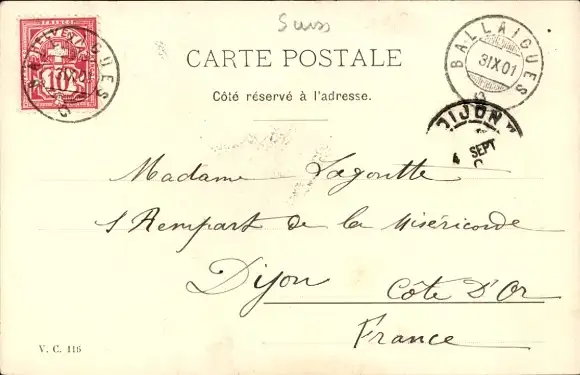 Suiss
FRANCO
HELVETIA
10
BALLAIGUES
CARTE POSTALE
Côté réservé à l'adresse.
BALLAIGUES
3IX01
DIJON
4 SEPT
Madame Lagoutte
1 Rempart de la Miséricorde
Dijon Côte D'Or
France
V. C. 116